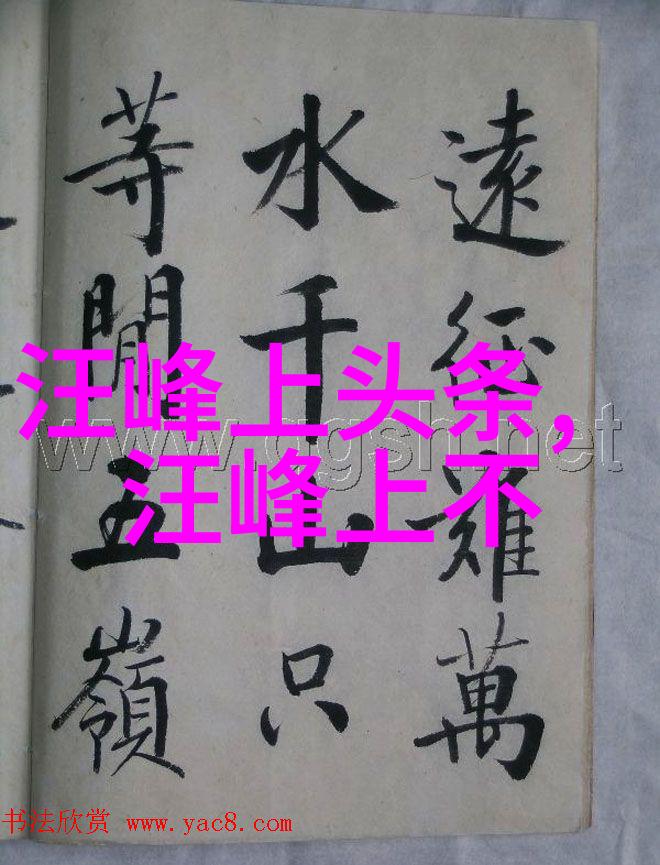 遠征難萬
水千山只
等閒五嶺
汪峰上头条,
汪峰上不
www.qgsh.net
书法欣赏 www.yac8.com